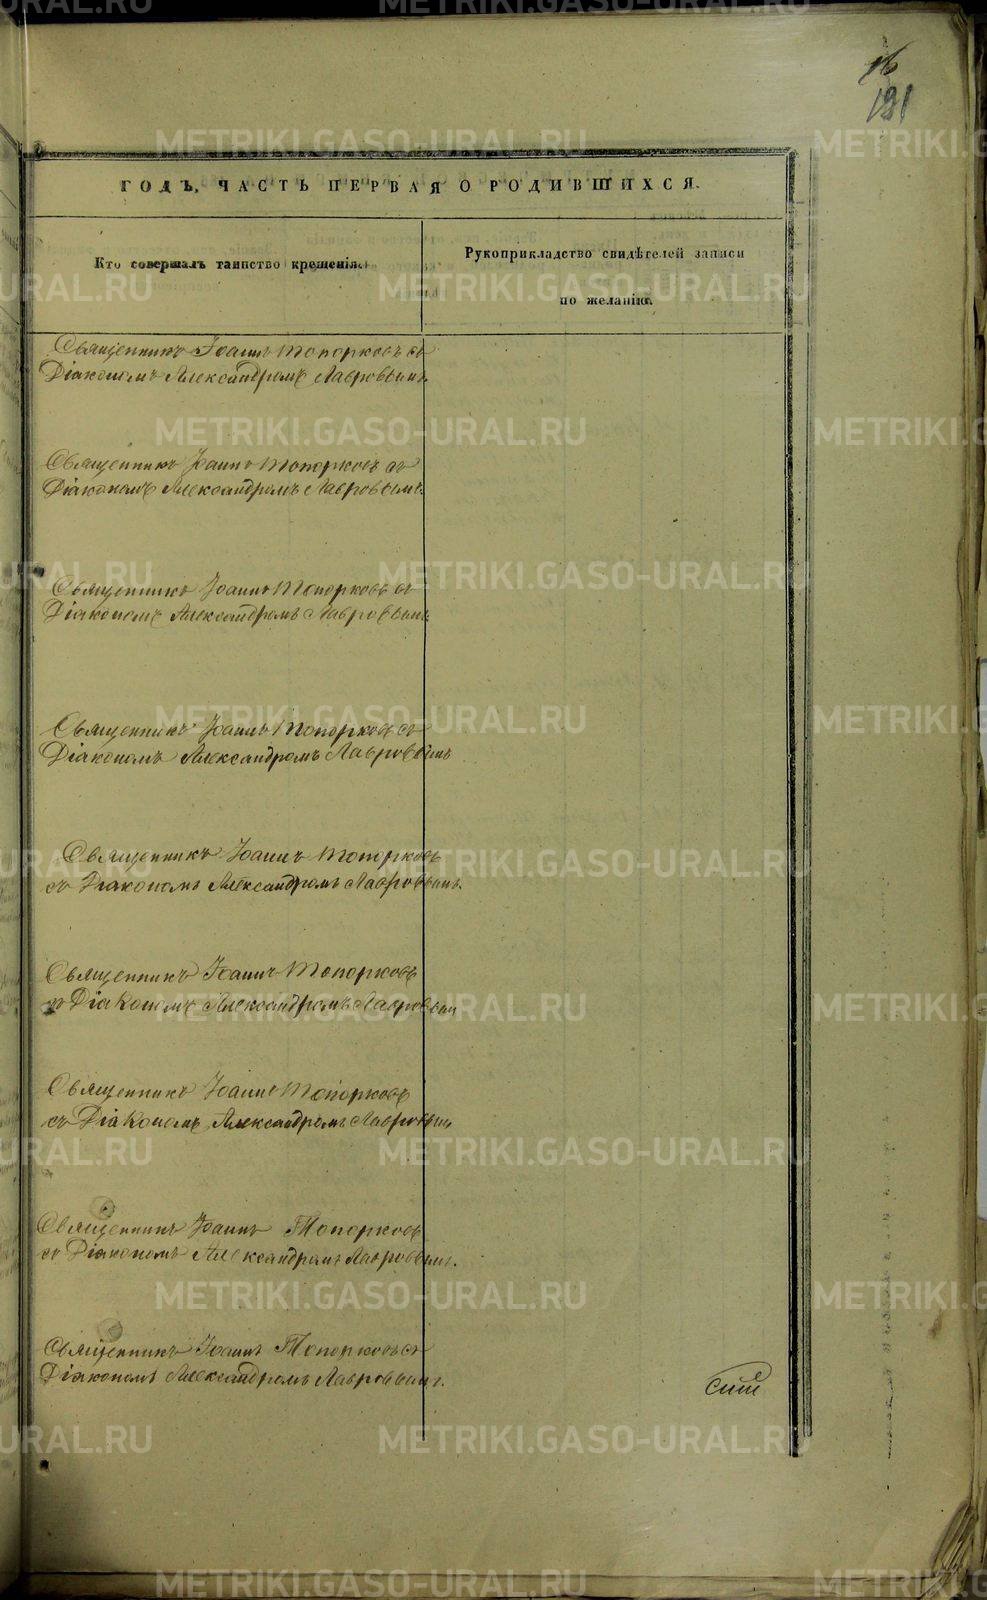 16
121
ГОДЪ, ЧАСТЬ ПЕРВАЯ О РОДИВШИХСЯ.
Кто совершалъ таинство крещенія.
Рукоприкладство свидѣтелей записи
по желанію.
Священникъ Іоаннъ Топорковъ съ
Діакономъ Александромъ Лавровымъ.
Священникъ Іоаннъ Топорковъ съ
Діакономъ Александромъ Лавровымъ.
Священникъ Іоаннъ Топорковъ съ
Діакономъ Александромъ Лавровымъ
Священникъ Іоаннъ Топорковъ съ
Діакономъ Александромъ Лавровымъ
Священникъ Іоаннъ Топорковъ
съ Діакономъ Александромъ Лавровымъ.
Священникъ Іоаннъ Топорковъ
съ Діакономъ Александромъ Лавровым
Священникъ Іоаннъ Топорковъ
съ Діакономъ Александромъ Лавровым
Священникъ Іоаннъ Топорковъ
съ Діакономъ Александромъ Лавровымъ.
Священникъ Іоаннъ Топорковъ съ
Діакономъ Александромъ Лавровымъ.
METRIKI.GASO-URAL.RU